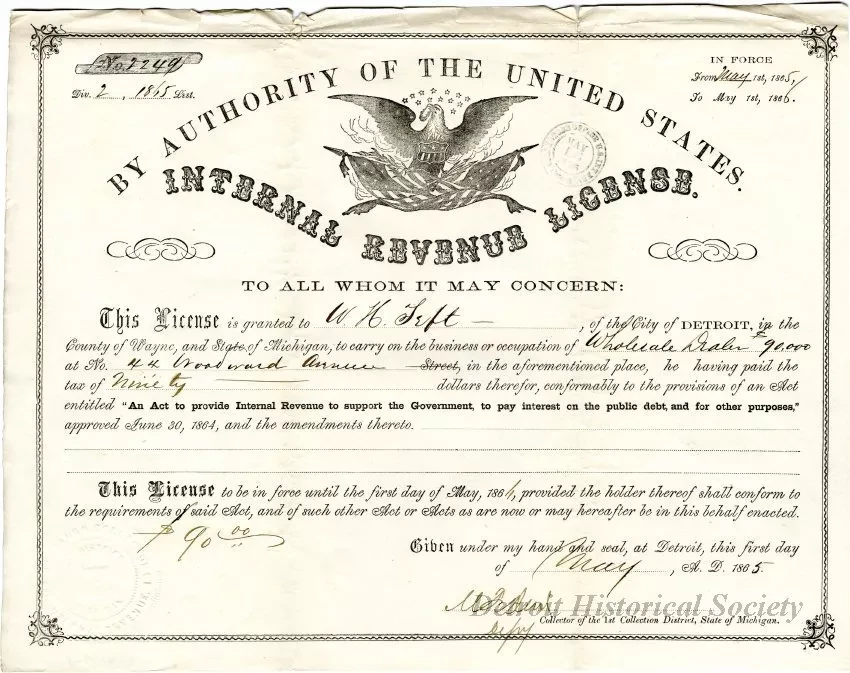 No. 2249
Div. 2, 1865 Dist.
IN FORCE
From May 1st, 1865,
To May 1st, 1866.
BY AUTHORITY OF THE UNITED STATES.
INTERNAL REVENUE LICENSE.
TO ALL WHOM IT MAY CONCERN:
This License is granted to W. H. Teft, of the City of DETROIT, in the
County of Wayne, and State of Michigan, to carry on the business or occupation of Wholesale Dealer $90,000
at No. 44 Woodward Avenue Street, in the aforementioned place, he having paid the
tax of Ninety dollars therefor, conformably to the provisions of an Act
entitled "An Act to provide Internal Revenue to support the Government, to pay interest on the public debt, and for other purposes,"
approved June 30, 1864, and the amendments thereto.
This License to be in force until the first day of May, 1866, provided the holder thereof shall conform to
the requirements of said Act, and of such other Act or Acts as are now or may hereafter be in this behalf enacted.
$90 00
Given under my hand and seal, at Detroit, this first day
of May, A. D. 1865.
Detroit Historical Society
Collector of the 1st Collection District, State of Michigan.
Depy